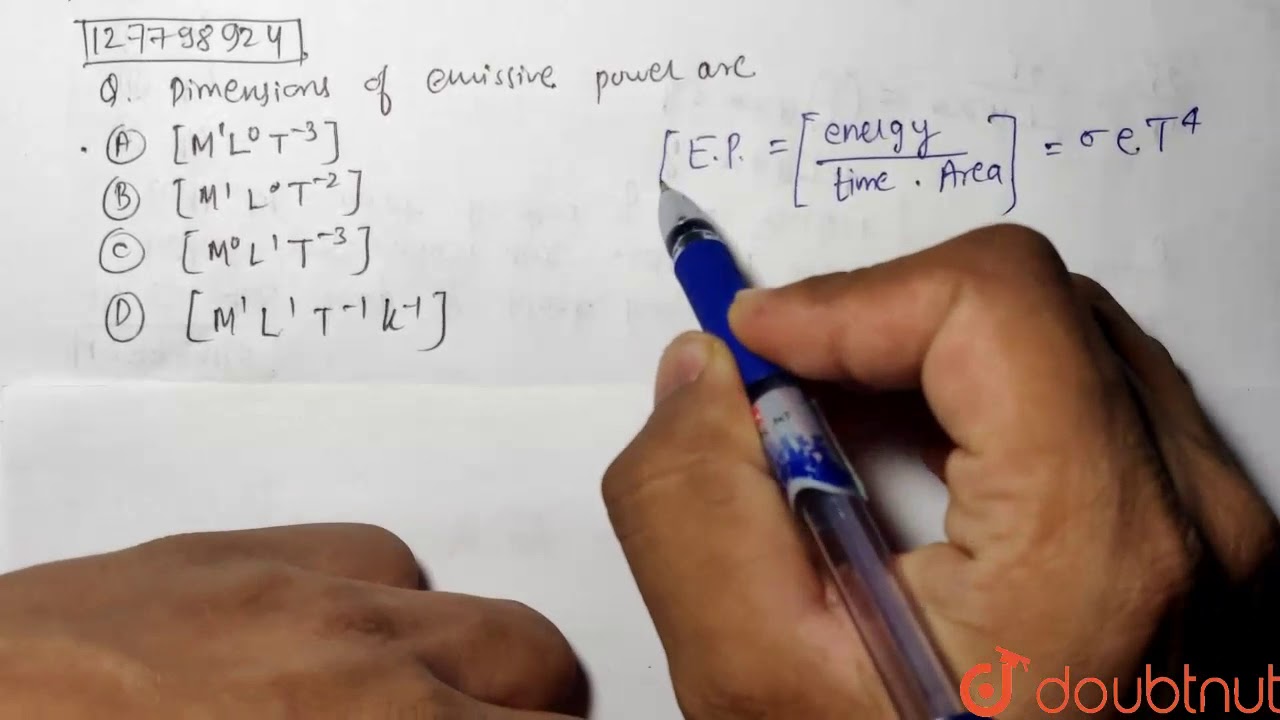 127798924
Q. Dimensions of emissive power are
(A) [M¹L⁰T⁻³]
(B) [M¹L⁰T⁻²]
(C) [M⁰L¹T⁻³]
(D) [M¹L¹T⁻¹k⁻¹]
[E.P. = [energy / time . Area] = σeT⁴
doubtnut